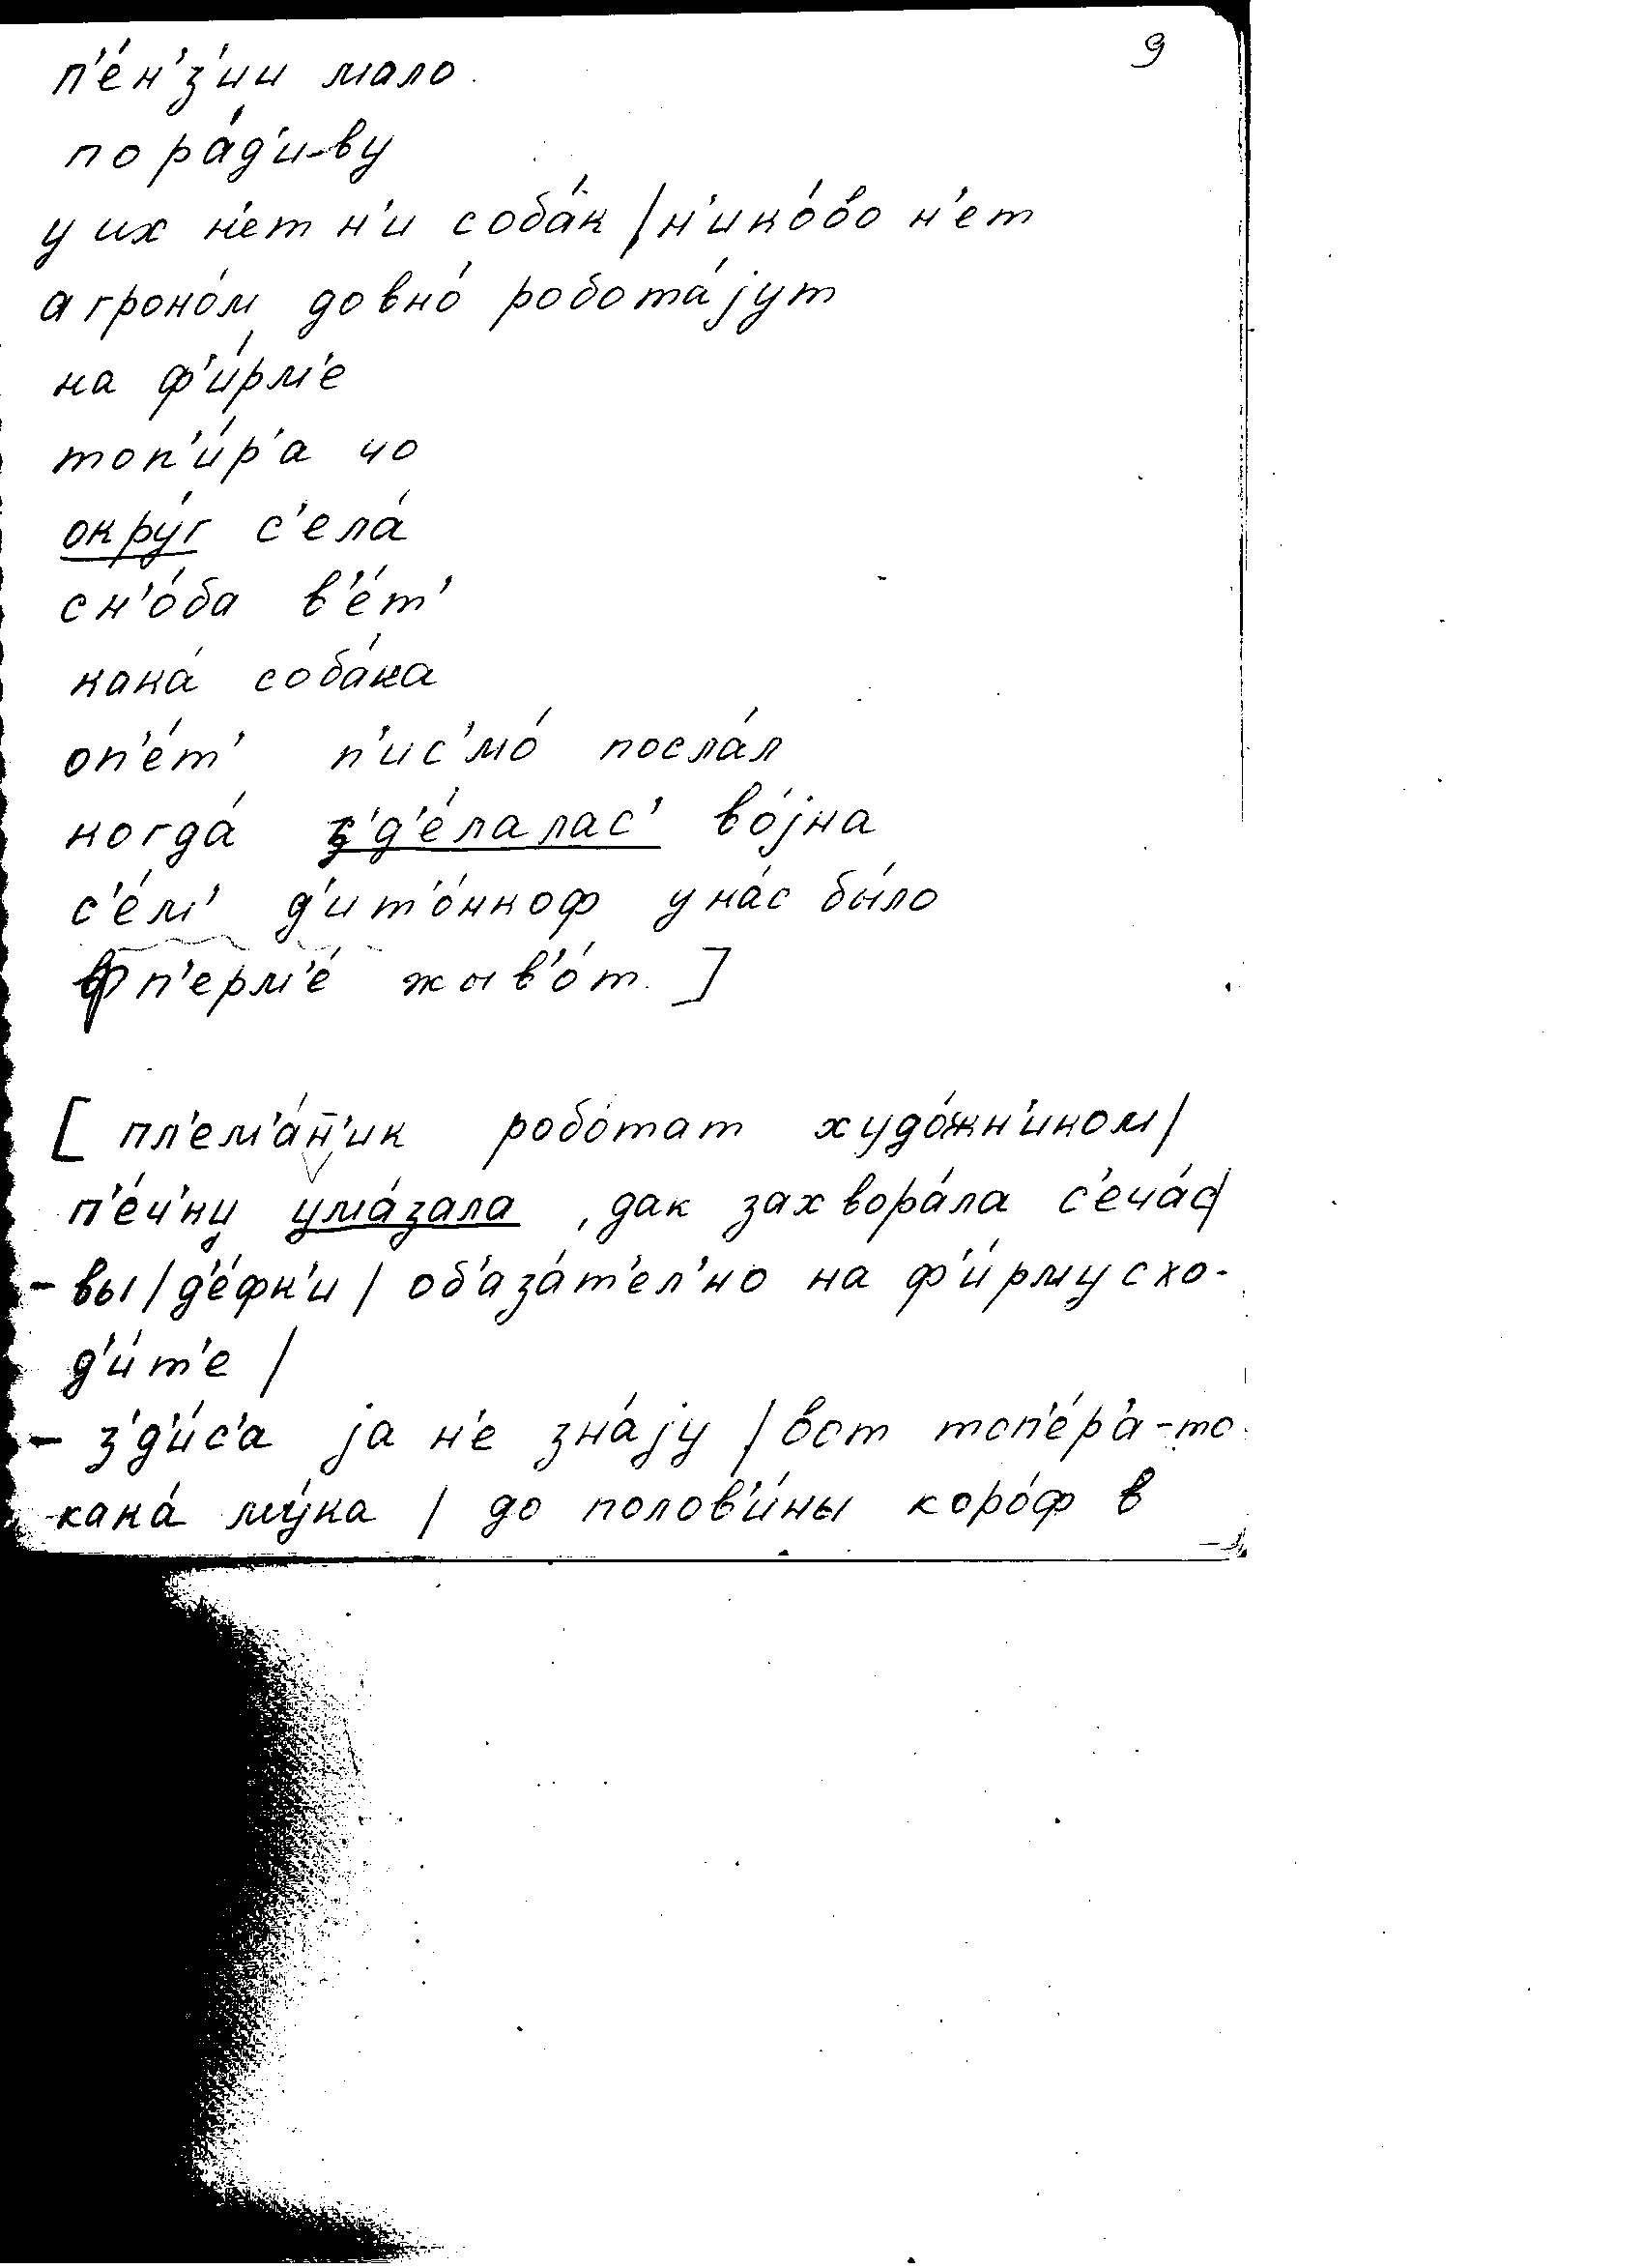 9
п'е́н'з'ии мало
по ра́д'иву
у их н'ет н'и соба́к / н'ико́во н'ет
агроно́м довно́ робота́јут
на ф'и́рм'е
топ'и́р'а чо
окру́г с'ела́
сн'о́ба в'е́т'
кака́ соба́ка
оп'е́т' п'ис'мо́ посла́л
когда́ з'д'е́лалас' во́јна
с'е́м' д'ит'о́нкоф у на́с бы́ло
ф п'ерм'е́ жыв'о́т. ]
[ пл'ем'а́н̄'ик робо́тат худо́жн'иком /
п'е́ч'ку ума́зала, дак захвора́ла с'еча́с /
- вы / д'е́фк'и / об'аза́т'ел'но на ф'и́рму схо-
д'и́т'е /
- з'д'и́с'а ја н'е зна́ју / вот топ'е́р'а-то
кака́ му́ка / до полов'и́ны коро́ф в